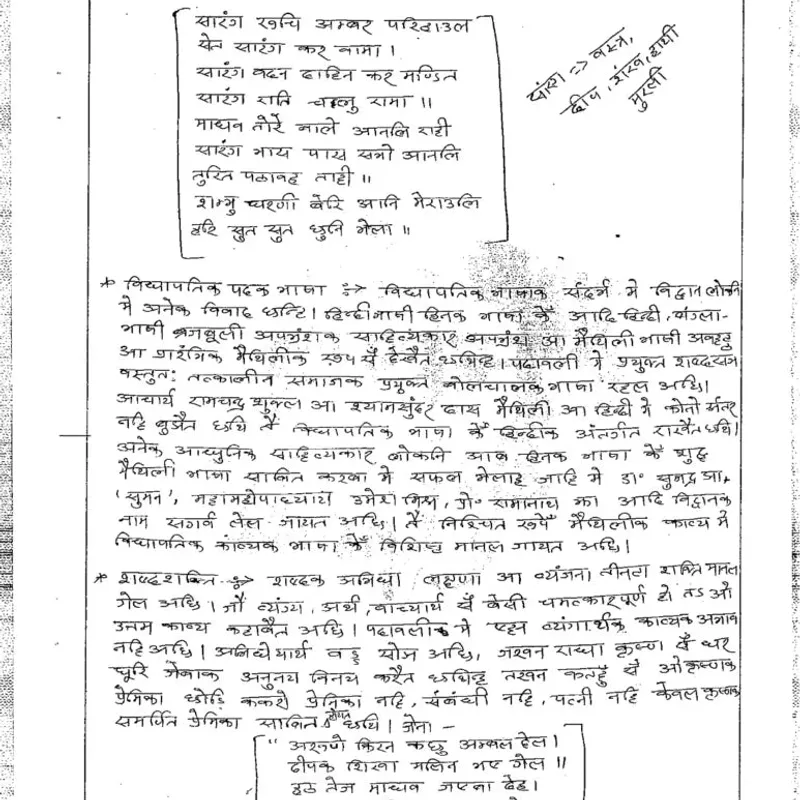 सारंग रुचि अम्बर परिठाउल
सेत सारंग कर वामा।
सारंग वदन दाहिन कर मण्डित
सारंग गति चलु रामा॥
माधव तोरे बोले आनलि राही
सारंग भाय पास सञो आनलि
तुरित पठावह ताही॥
शम्भु घरणी बेरि आनि मेराउलि
हरि सुत सुत धुनि भेला॥
सारंग => वस्त्र,
दीप, शंख, हाथी
मुरली
* विद्यापतिक पदक भाषा :-> विद्यापतिक भाषाक संदर्भ मे विद्वान लोकनि
मे अनेक विवाद छन्हि। हिन्दीभाषी हिनक भाषा कें आदि हिन्दी, बंगला-
भाषी ब्रजबुली अपभ्रंशक साहित्यकार अपभ्रंश आ मैथिली भाषी अवहट्ट
आ प्रारंभिक मैथिलीक रूप सँ देखैत छथिन्ह। पदावली मे प्रयुक्त शब्द
वस्तुतः तत्कालीन समाजक प्रयुक्त बोलचालक भाषा रहल अछि।
आचार्य रामचन्द्र शुक्ल आ श्यामसुंदर दास मैथिली आ हिन्दी मे कोनो अंतर
नहि बुझैत छथि तें विद्यापतिक भाषा कें हिन्दीक अंतर्गत राखैत छथि।
अनेक आधुनिक साहित्यकार लोकनि आब हिनक भाषा कें शुद्ध
मैथिली भाषा साबित करबा मे सफल भेलाह जाहि मे डा॰ सुभद्र झा,
'सुमन', महामहोपाध्याय उमेश मिश्र, प्रो॰ रामानाथ झा आदि विद्वानक
नाम सगर्व लेल जायत अछि। तें निश्चित रूपें मैथिलीक काव्य मे
विद्यापतिक काव्यक भाषा कें विशिष्ट मानल जायत अछि।
* शब्दशक्ति :-> शब्दक अभिधा लक्षणा आ व्यंजना तीनटा शक्ति मानल
गेल अछि। जौं व्यंग्य, अर्थ, वाच्यार्थ सँ बेसी चमत्कारपूर्ण हो तऽ ओ
उत्तम काव्य कहाबैत अछि। पदावली मे एहन व्यंगार्थक काव्यक अभाव
नहि अछि। अभिधेयार्थ बड्ड सोझ अछि, जखन राधा कृष्ण सँ घर
घूरि जेबाक अनुनय विनय करैत छथिन्ह तखन कतहुँ सँ ओ कृष्णक
प्रेमिका छोड़ि ककरो प्रेमिका नहि, संबंधी नहि, पत्नी नहि केवल कृष्णक
समर्पित प्रेमिका साबित होइत छथि। जेना -
" अरुण किरन कछु अम्बर देल।
दीपक शिखा मलिन भए गेल॥
हठ तेज माधव जएबा देह।